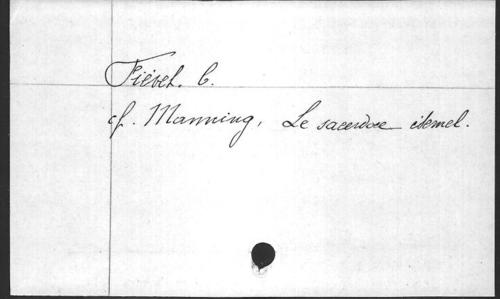 Fiévet, C.
cf. Manning, Le sacerdoce éternel.